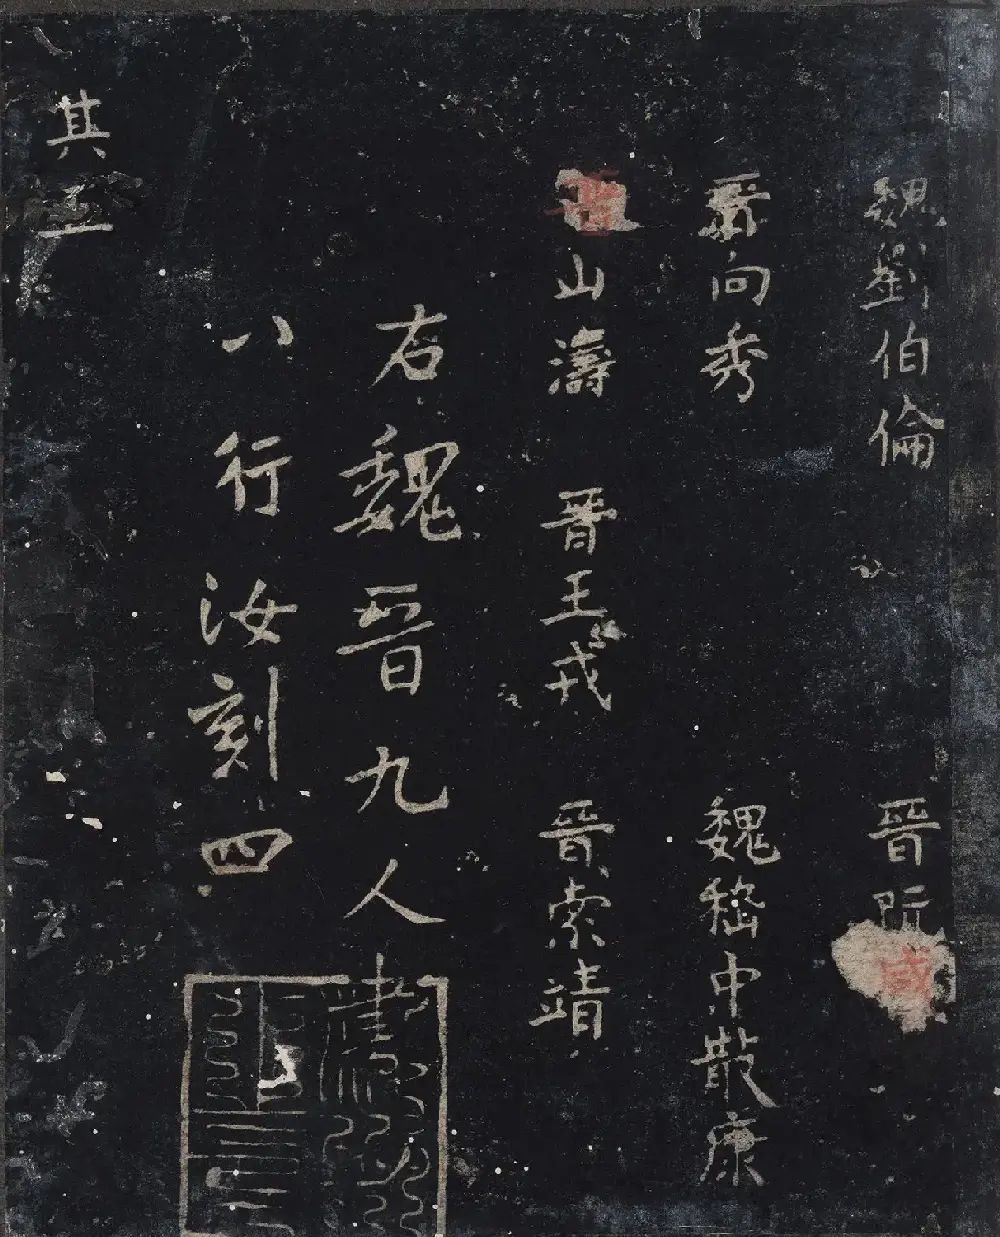 魏劉伯倫 晉阮咸
晉向秀 魏嵇中散康
晉山濤 晉王戎 晉索靖
右魏晉九人書
八行汝刻四
其五